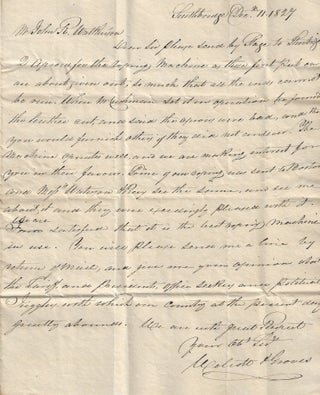 Southbridge Decr. 11. 1827
Mr John R. Watkinson
Dear Sir Please send by Stage to Sturbridge
2 Aprons for the roping Machine as those first put on
are about given out, so much that all the ends cannot
be run. When Mr Cushman set it in operation he found
the leather out, and said the aprons were bad, and that
you would furnish others if they did not endure. The
Machine opperates well, and we are making interest for
you in their favour. Some of our roping was sent to Boston
and Messrs. and they saw the same, and see me
about it and they were exceedingly pleased with it.
We are
satisfied that it is the best roping Machine
in use. You will please send me a line by
return of Mail, and give me your opinion about
the Tariff, and President, office seekers and political
Juggler, with which our Country at the present day
greatly abounds. We are with great Respect
Your Obt. Servt
Wolcott & Groves